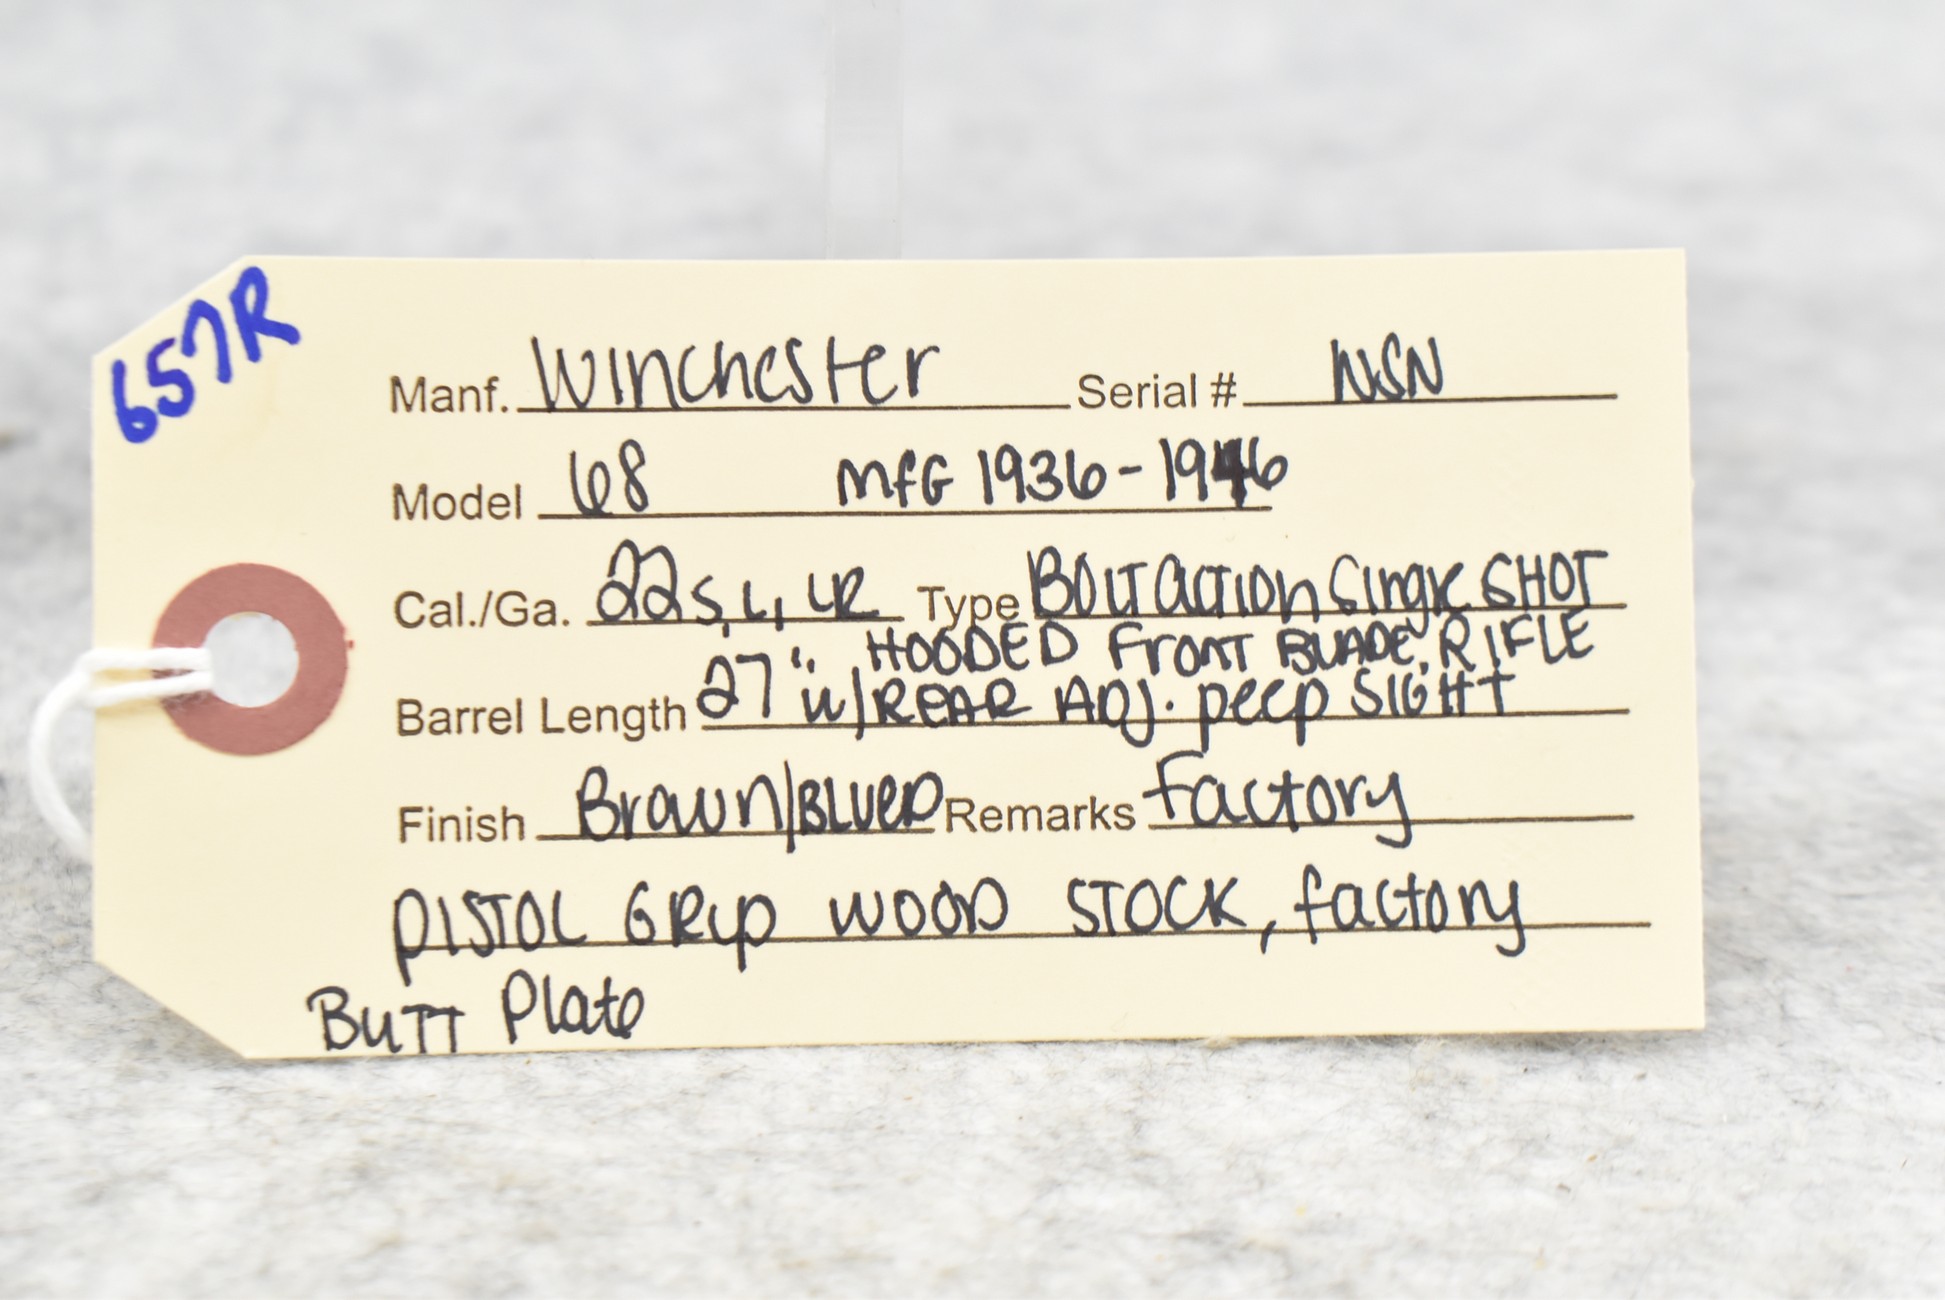 657R
Manf. Winchester Serial # NSN
Model 68 MFG 1936-1946
Cal./Ga. 22 S, L, LR Type Bolt Action Single SHOT
HOODED Front BLADE, RIFLE
Barrel Length 27" w/ REAR ADJ. peep SIGHT
Finish Brown/BLUED Remarks Factory
PISTOL GRip WOOD STOCK, factory
BUTT Plate